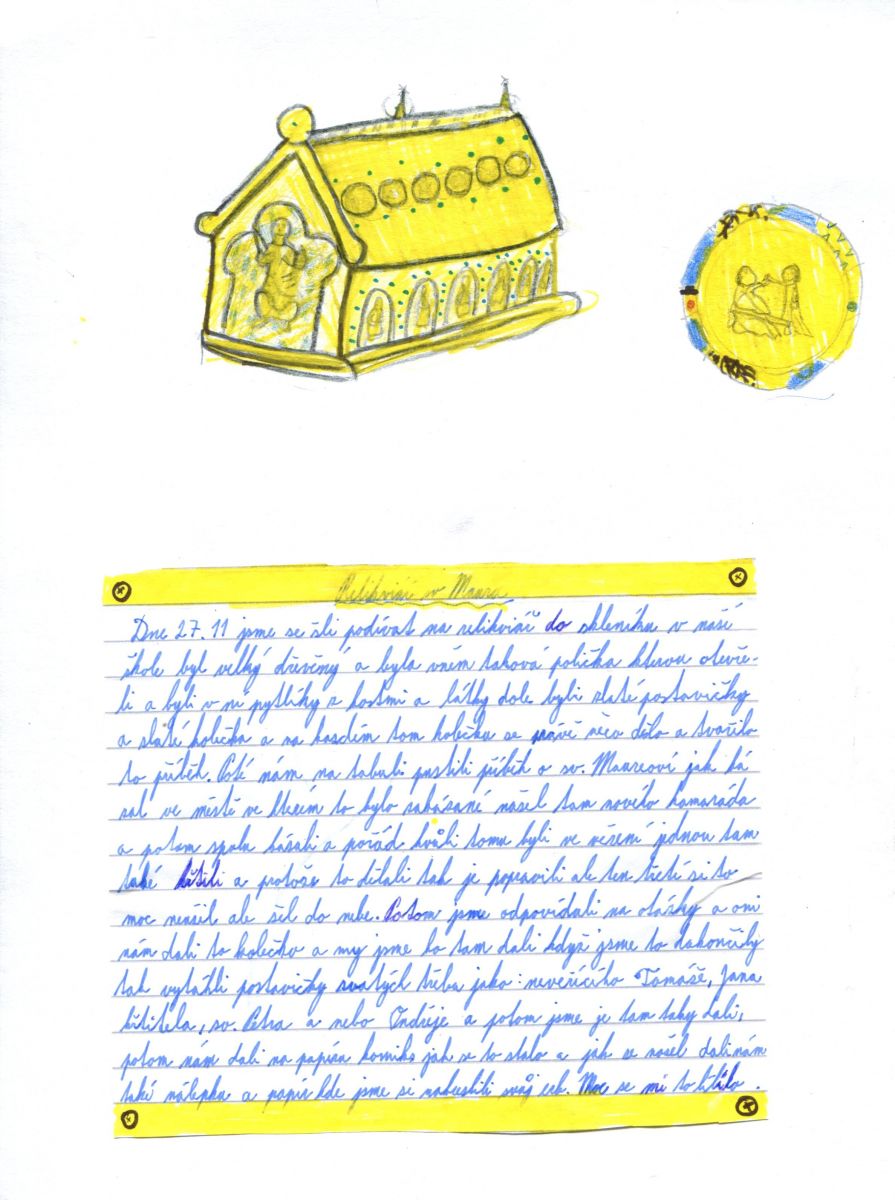 Relikviář sv Maura
Dne 27.11 jsme se šli podívat na relikviář do skleníku v naší
škole byl velký dřevěný a byla vněm taková polička kterou otevře-
li a byli v ní pytlíky s kostmi a látky dole byli slaté postavičky
a slaté kolečka a na kascém tom kolečku se právě něco dělo a tvořilo
to příběh. Poté nám na tabuli pustili příběh o sv. Maurovi jak ká
sal ve městě ve kterém to bylo zakásané našel tam nového kamaráda
a potom spolu kásali a pořád kvůli tomu byli ve vězení jednou tam
také křtili a protože to dělali tak je popravili ale ten třetí si to
moc neužil ale šel do nebe. Potom jsme odpovídali na otázky a oni
nám dali to kolečko a my jsme ho tam dali když jsme to dokončily
tak vytáhli postavičky svatých třeba jako: nevěřícího Tomáše, Jana
křtitela, sv. Petra a nebo Ondřeje a potom jsme je tam taky dali,
potom nám dali na papíru komiks jak se to stalo a jak se našel dali nám
také nálepku a papír kde jsme si nakreslili svůj erb. Moc se mi to líbilo.